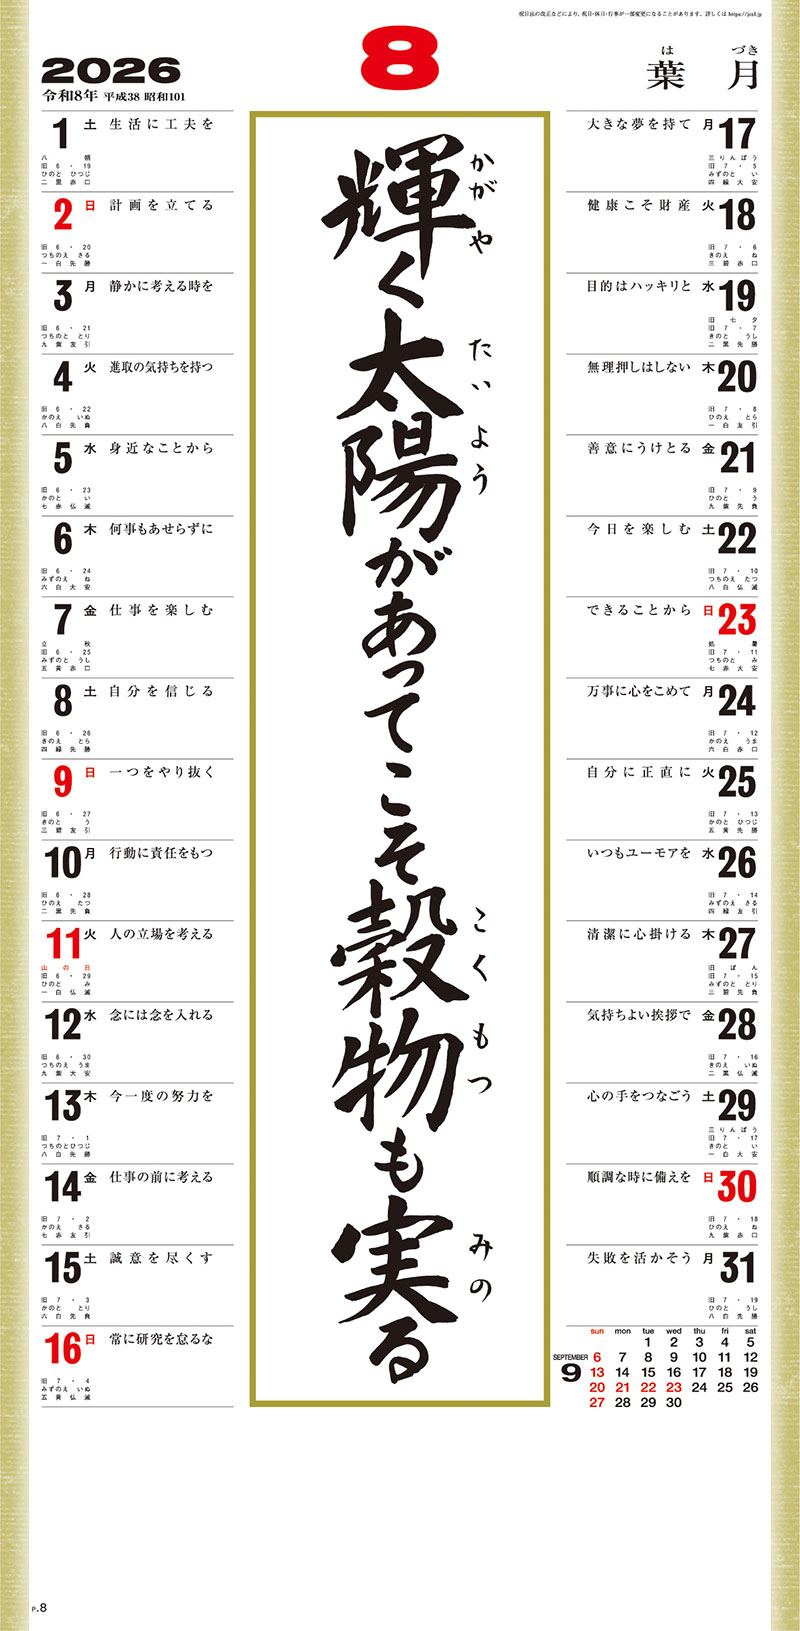 祝日法の改正などにより、祝日・休日・行事が一部変更になることがあります。詳しくは https://jcal.jp
8
2026
令和8年 平成38 昭和101
はづき
葉月
輝く太陽があってこそ穀物も実る
かがや
たいよう
こくもつ
みの
1 土 生活に工夫を
八朔
旧6・19
ひのと ひつじ
二黒赤口
2 日 計画を立てる
旧6・20
つちのえ さる
一白先勝
3 月 静かに考える時を
旧6・21
つちのと とり
九紫友引
4 火 進取の気持ちを持つ
旧6・22
かのえ いぬ
八白先負
5 水 身近なことから
旧6・23
かのと い
七赤仏滅
6 木 何事もあせらずに
旧6・24
みずのえ ね
六白大安
7 金 仕事を楽しむ
立秋
旧6・25
みずのと うし
五黄赤口
8 土 自分を信じる
旧6・26
きのえ とら
四緑先勝
9 日 一つをやり抜く
旧6・27
きのと う
三碧友引
10 月 行動に責任をもつ
旧6・28
ひのえ たつ
二黒先負
11 火 人の立場を考える
山の日
旧6・29
ひのと み
一白仏滅
12 水 念には念を入れる
旧6・30
つちのえ うま
九紫大安
13 木 今一度の努力を
旧7・1
つちのとひつじ
八白先勝
14 金 仕事の前に考える
旧7・2
かのえ さる
七赤友引
15 土 誠意を尽くす
旧7・3
かのと とり
六白先負
16 日 常に研究を怠るな
旧7・4
みずのえ いぬ
五黄仏滅
大きな夢を持て 月 17
三りんぼう
旧7・5
みずのと い
四緑大安
健康こそ財産 火 18
旧7・6
きのえ ね
三碧赤口
目的はハッキリと 水 19
旧七夕
旧7・7
きのと うし
二黒先勝
無理押しはしない 木 20
旧7・8
ひのえ とら
一白友引
善意にうけとる 金 21
旧7・9
ひのと う
九紫先負
今日を楽しむ 土 22
旧7・10
つちのえ たつ
八白仏滅
できることから 日 23
処暑
旧7・11
つちのと み
七赤大安
万事に心をこめて 月 24
旧7・12
かのえ うま
六白赤口
自分に正直に 火 25
旧7・13
かのと ひつじ
五黄先勝
いつもユーモアを 水 26
旧7・14
みずのえ さる
四緑友引
清潔に心掛ける 木 27
旧ぼん
旧7・15
みずのと とり
三碧先負
気持ちよい挨拶で 金 28
旧7・16
きのえ いぬ
二黒仏滅
心の手をつなごう 土 29
三りんぼう
旧7・17
きのと い
一白大安
順調な時に備えを 日 30
旧7・18
ひのえ ね
九紫赤口
失敗を活かそう 月 31
旧7・19
ひのと うし
八白先勝
SEPTEMBER
9
sun mon tue wed thu fri sat
1 2 3 4 5
6 7 8 9 10 11 12
13 14 15 16 17 18 19
20 21 22 23 24 25 26
27 28 29 30
P.8